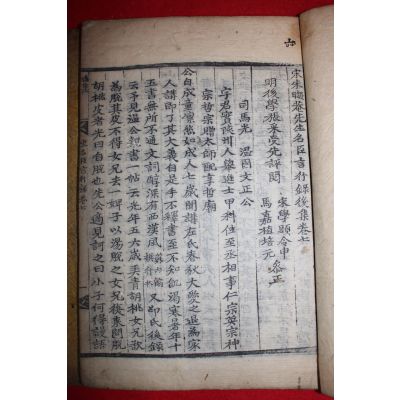 宋朱晦菴先生名臣言行錄後集卷七
明後學張采受先評閱
宋學顯令申
馬嘉植培元
參正
司馬光 溫國文正公
字君實陝州人擧進士甲科仕至丞相事仁宗英宗神
宗哲宗贈太師配享哲廟
公自成童凜然如成人七歲聞講左氏春秋大愛之退爲家
人講即了其大義自是手不釋書至不知飢渴寒暑年十
五書無所不通文詞醇深有西漢風 又邵氏後錄
云予見溫公親書一帖云光年五六歲弄靑胡桃女兄欲
爲脫其皮不得女兄去一婢子以湯脫之女兄復來問脫
胡桃皮者光曰自脫也先公適見訶之曰小子何得謾語